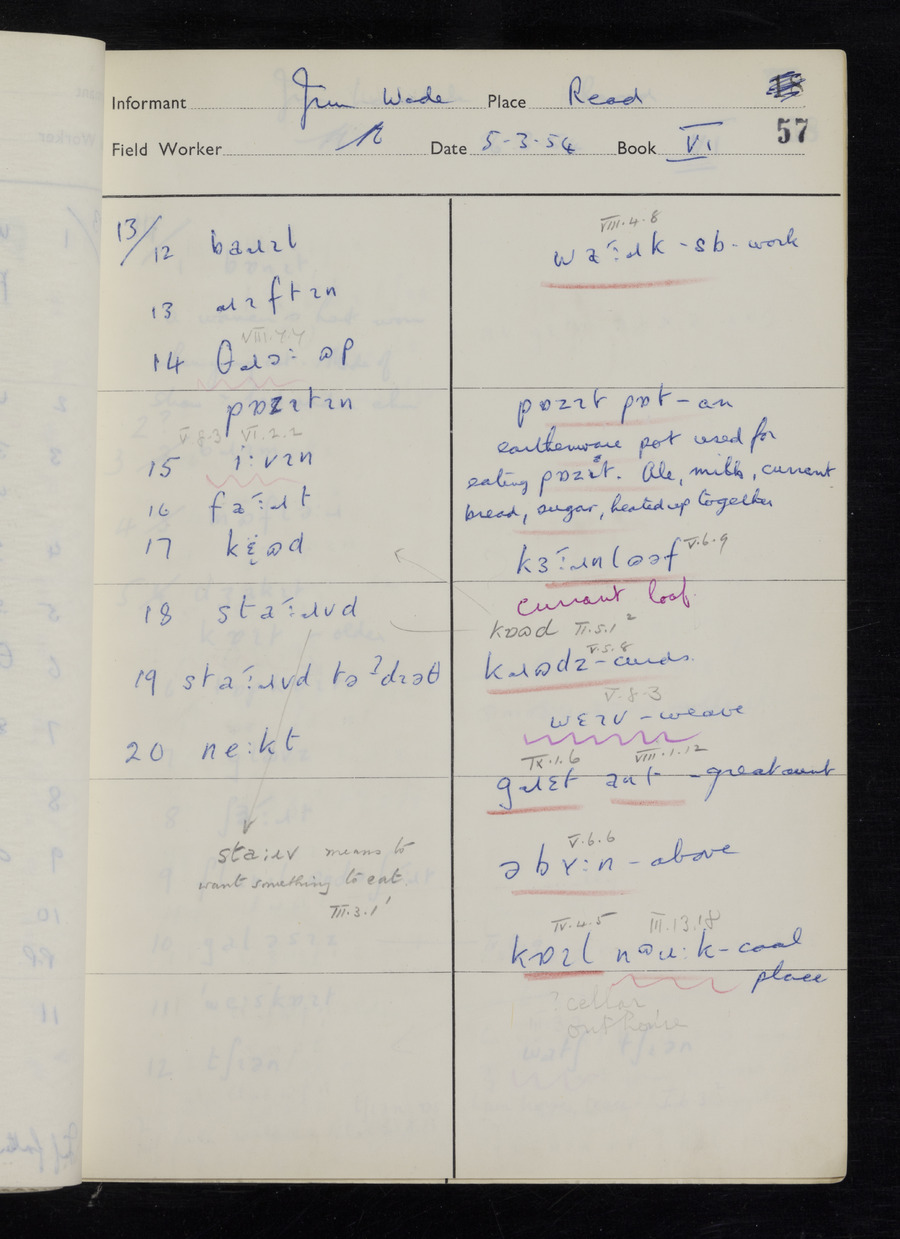 Informant Jim Wade Place Read 18
57
Field Worker Date 5-3-54 Book VI
13/12 baɹɪl
13 aɹɪftɪn
VIII.4.4
14 θɹɔː ɷp
pɒzɪtɪn
V.8.3 VI.2.2
15 iːvɪn
16 fəːɹt
17 kɷd
18 staːɹvd
19 staːɹvd tə ʔdɪəθ
20 neːkt
staːɹv means to
want something to eat.
III.3.1
VIII.4.8
wəːɹk - sb - work
pɒzɪt pɒt - an
earthenware pot used for
eating pɒzɪt. Ale, milk, currant
bread, sugar, heated up together
kɜːɹnlɔəf V.6.9
currant loaf
kɒɷd II.5.1
V.5.8
kɹɷdz - curds.
V.8.3
wɛɪv - weave
IX.1.6 VIII.1.12
gɹɛt ant - great aunt
V.6.6
əbʏːn - above
IV.4.5 III.13.18
kɒɪl nɷuːk - coal
place
? cellar
outhouse